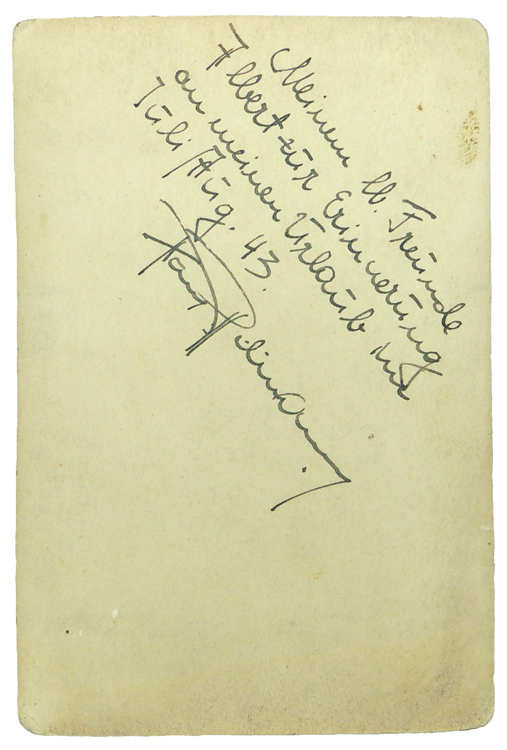 Meinem lb. Freunde
Albert zur Erinnerung
an meinen Urlaub im
Juli/Aug. 43.